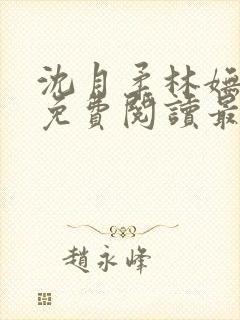 沈自柔林嫵
免費閱讀最
趙永峰